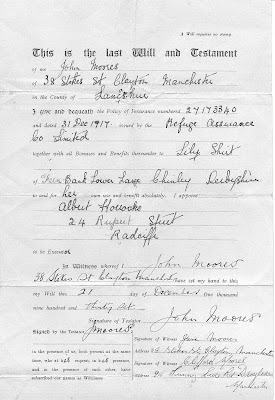 A Will requires no stamp.
This is the last Will and Testament
of me John Moores
of 38 Stokes St. Clayton Manchester
in the County of Lancashire
I give and bequeath the Policy of Insurance numbered 27173340
and dated 31 Dec 1917 issued by the Refuge Assurance
Co Limited
together with all Bonuses and Benefits thereunder to Lily Shirt
of Fern Bank Lower Lane Chinley Derbyshire
to and for her own use and benefit absolutely. I appoint
Albert Howcocks
24 Rupert Street
Radcliffe
to be Executor
In Witness whereof I John Moores
38 Stokes St Clayton Manch have set my hand to this
my Will this 21 day of December One thousand
nine hundred and Thirty Oct
Signature of Testator John Moores
Signed by the Testator J Moores
in the presence of us, both present at the same
time, who at his request, in his presence,
and in the presence of each other, have
subscribed our names as Witnesses
Signature of Witness Jane Moores
Address 38 Stokes St, Clayton, Manchester
Signature of Witness Clifford
Address
Manchester